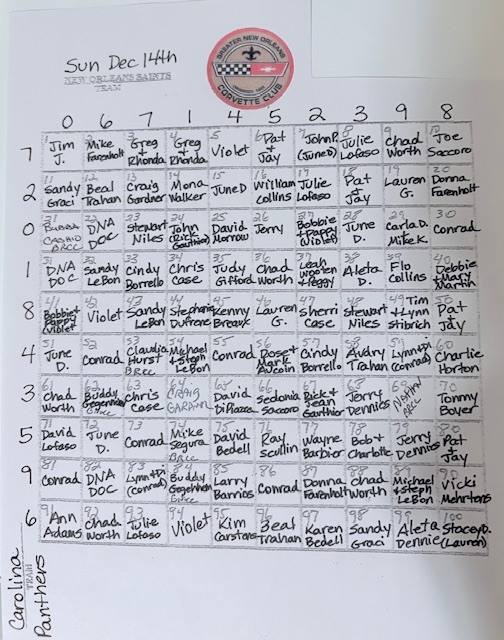 Sun Dec 14th
NEW ORLEANS SAINTS
TEAM
GREATER NEW ORLEANS
CORVETTE CLUB
0 6 7 1 4 5 2 3 9 8
7
1 Jim J.
2 Mike Farenholt
3 Greg & Rhonda
4 Greg & Rhonda
5 Violet
6 Pat & Jay
7 John P. (June D)
8 Julie Lofaso
9 Chad Worth
10 Joe Saccoro
2
11 Sandy Graci
12 Beal Trahan
13 Craig Gardner
14 Mona Walker
15 June D
16 William Collins
17 Julie Lofaso
18 Pat & Jay
19 Lauren G.
20 Donna Farenholt
0
21 Bubba Cashio BRCC
22 DNA DOC
23 Stewart Niles
24 John (Rick Gauthier)
25 David Morrow
26 Jerry
27 Bobbie + Pappy (Violet)
28 June D.
29 Carla D. Mike K.
30 Conrad
1
31 DNA DOC
32 Sandy LeBon
33 Cindy Borrello
34 Chris Case
35 Judy Gifford
36 Chad Worth
37 Leah Wooten + Peggy
38 Aleta D.
39 Flo Collins
40 Debbie + Mary Martin
8
41 Bobbie + Pappy Violet
42 Violet
43 Sandy LeBon
44 Stephanie Dufrene
45 Kenny Breaux
46 Lauren G.
47 Sherri Case
48 Stewart Niles
49 Tim + Lynn Stibrich
50 Pat & Jay
4
51 June D.
52 Conrad
53 Claudia Hurst BRCC
54 Michael + Steph LeBon
55 Conrad
56 Dose + Mark Aucoin
57 Cindy Borrello
58 Audry Trahan
59 Lynn + Di (Conrad)
60 Charlie Horton
3
61 Chad Worth
62 Buddy Gegenheimer BRCC
63 Chris Case
64 CRAIG GARAHAN
65 David DiPiazza
66 Sedonia Saccoro
67 Rick & Jean Gauthier
68 Jerry Dennies
69 BRCC
70 Tommy Boyer
5
71 David Lofaso
72 June D.
73 Conrad
74 Mike Segura BRCC
75 David Bedell
76 Ray Scullin
77 Wayne Barbier
78 Bob & Charlotte
79 Jerry Dennies
80 Pat & Jay
9
81 Conrad
82 DNA DOC
83 Lynn + Di (Conrad)
84 Buddy Gegenheimer BRCC
85 Larry Barrios
86 Conrad
87 Donna Farenholt
88 Chad Worth
89 Michael + Steph LeBon
90 Vicki Mehrtens
6
91 Ann Adams
92 Chad Worth
93 Julie Lofaso
94 Violet
95 Kim Carstens
96 Beal Trahan
97 Karen Bedell
98 Sandy Graci
99 Aleta Dennie
100 Stacey D. (Lauren)
Carolina
TEAM
Panthers